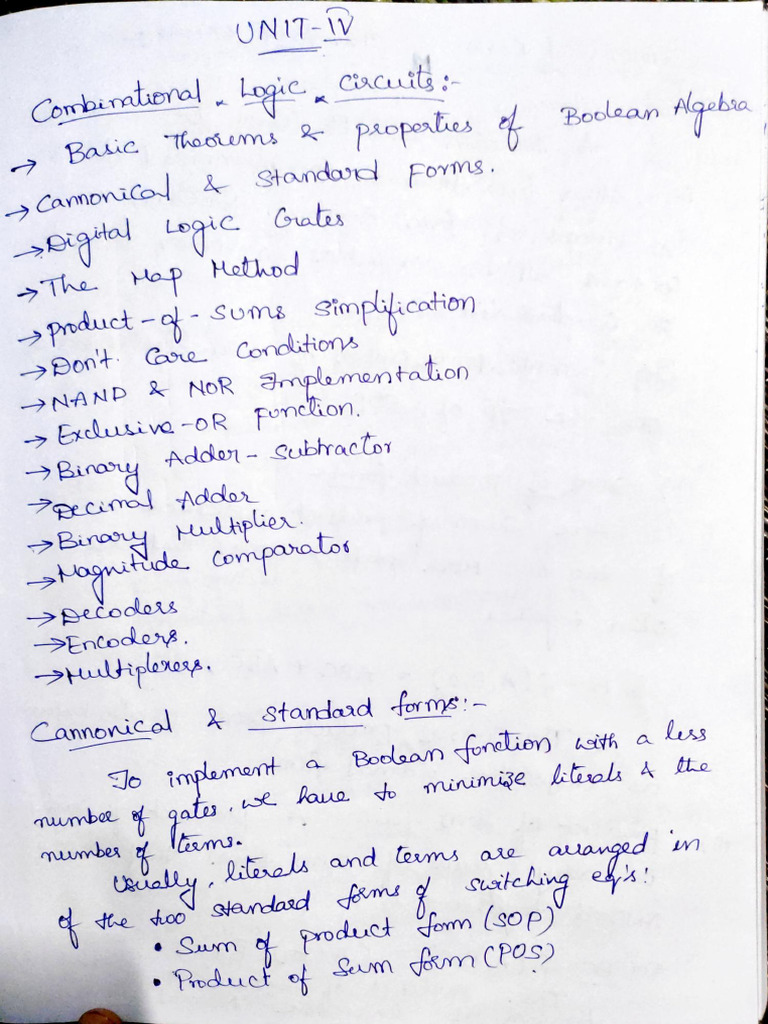 UNIT-IV
Combinational Logic Circuits:-
→ Basic Theorems & properties of Boolean Algebra
→ Cannonical & Standard Forms.
→ Digital Logic Gates
→ The Map Method
→ product-of-sums simplification
→ Don't Care Conditions
→ NAND & NOR Implementation
→ Exclusive-OR Function.
→ Binary Adder-Subtractor
→ Decimal Adder
→ Binary Multiplier.
→ Magnitude Comparator
→ Decoders
→ Encoders.
→ Multiplexers.
Cannonical & standard forms:-
To implement a Boolean function with a less
number of gates, we have to minimize literals & the
number of terms.
Usually, literals and terms are arranged in
of the two standard forms of switching eq's:
• Sum of product form (SOP)
• Product of Sum form (POS)